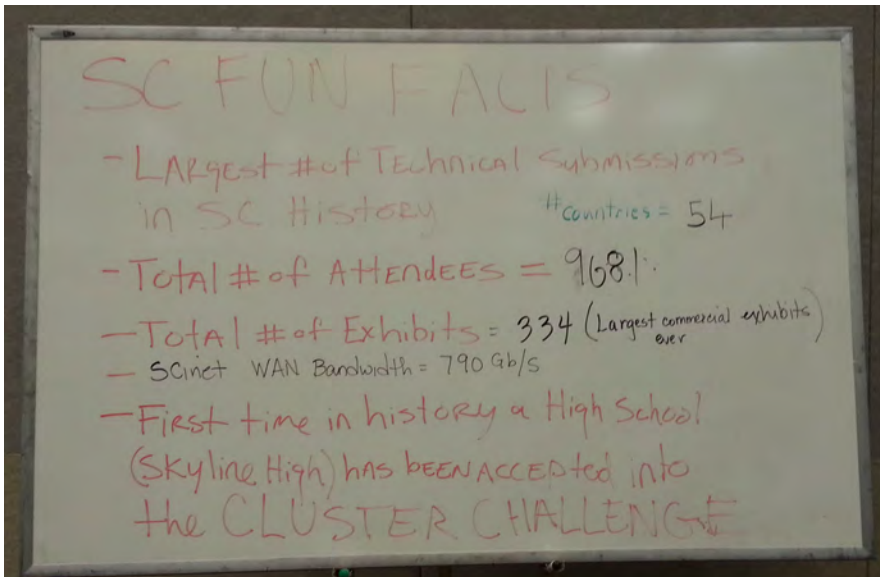 SC FUN FACTS
- LARgEst # of TEchnical Submissions
in SC HistoRy
#Countries = 54
- TotAl # of AttEndEES = 9681
- TotAl # of Exhibits = 334 (Largest commercial exhibits
ever)
- SCinet WAN Bandwidth = 790 Gb/s
- FiRst time in history a High School
(Skyline High) hAs bEEN AccEpted into
the CLUSTER CHALLENGE